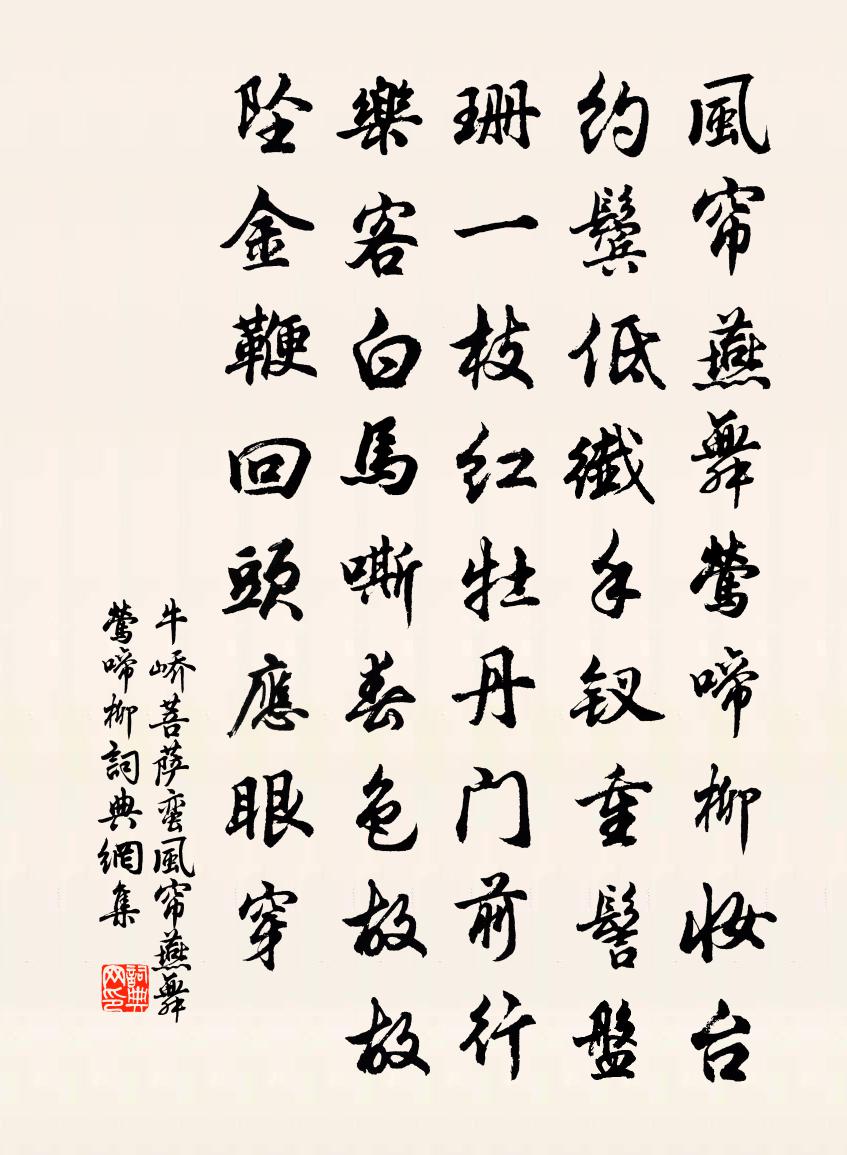 風帘燕舞鶯啼柳妝台
约鬓低纖手釵重髻盤
珊一枝红牡丹门前行
樂客白馬嘶春色故故
坠金鞭回頭應眼穿
牛嶠菩萨蛮風帘燕舞
鶯啼柳詞典網集
詞典
网印